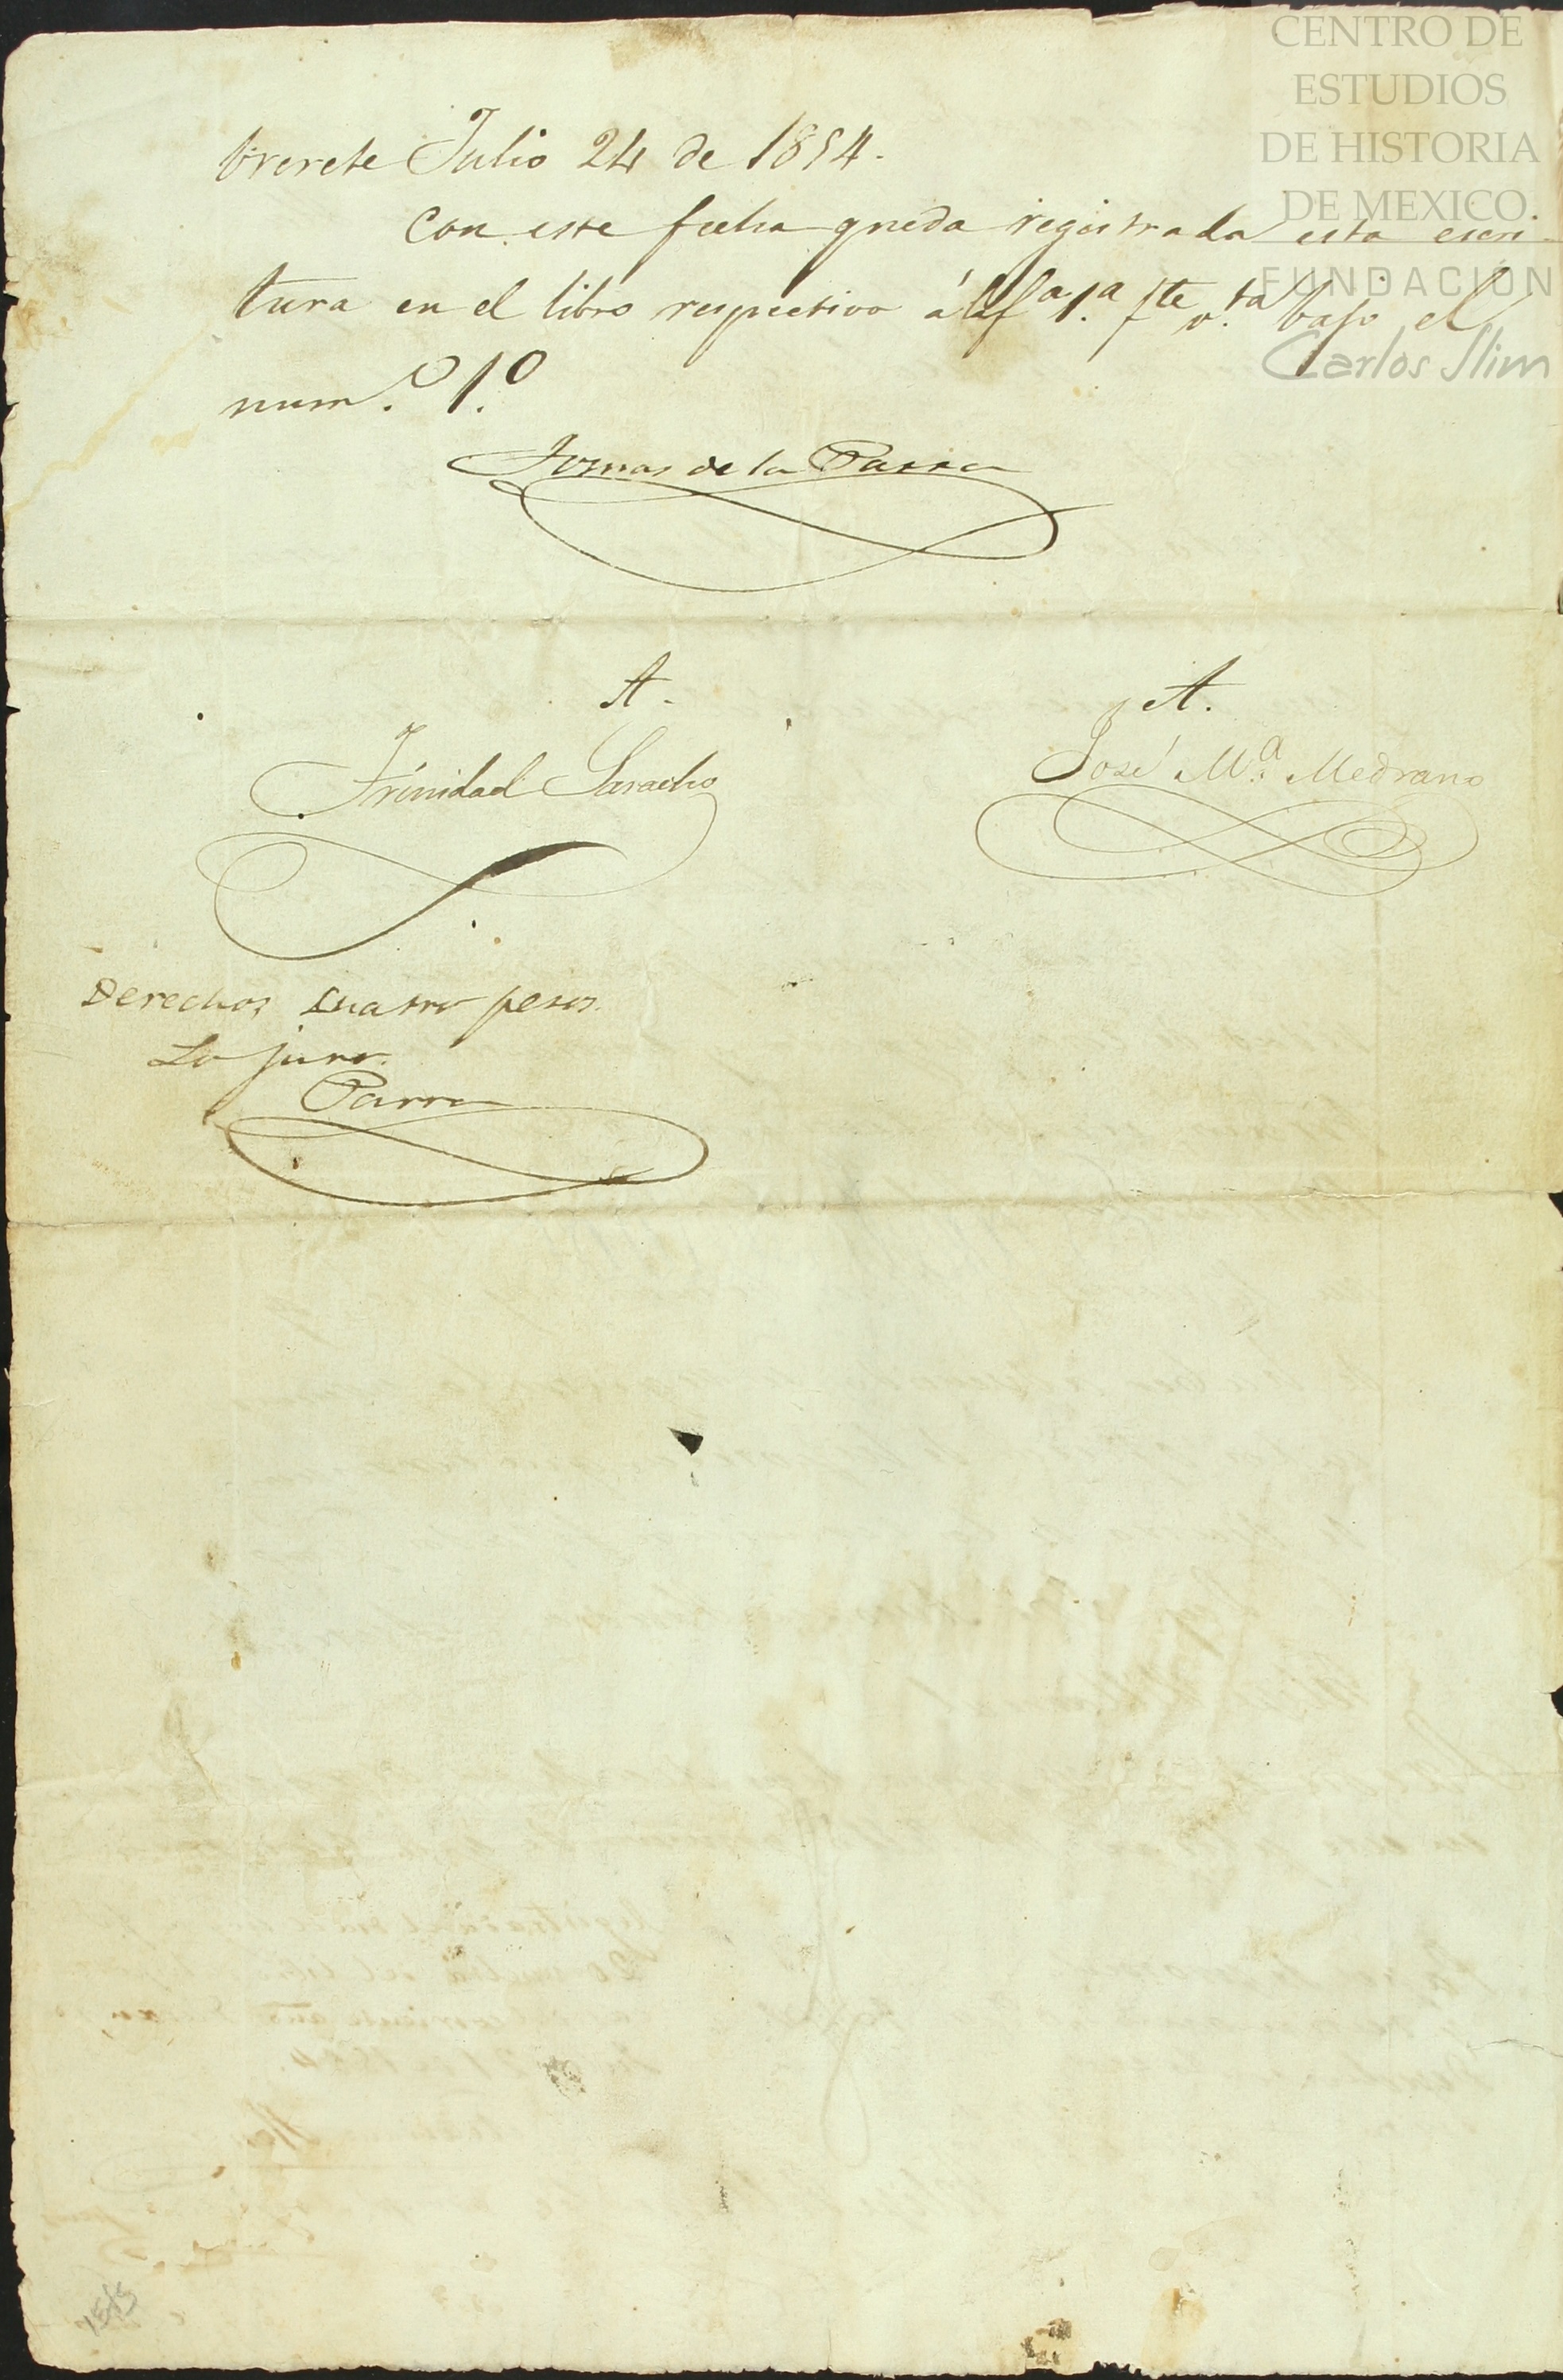 CENTRO DE
ESTUDIOS
DE HISTORIA
DE MEXICO.
FUNDACION
Carlos Slim
Julio 24 de 1854.
Con esta fecha queda registrada esta escri-
tura en el libro respectivo á la 1.ª fte v.ta bajo el
num.º 1.º
Tomas de la Parra
A.
A.
Trinidad Saracho
José M.ª Medrano
Derechos cuatro pesos.
Lo juro.
Parra